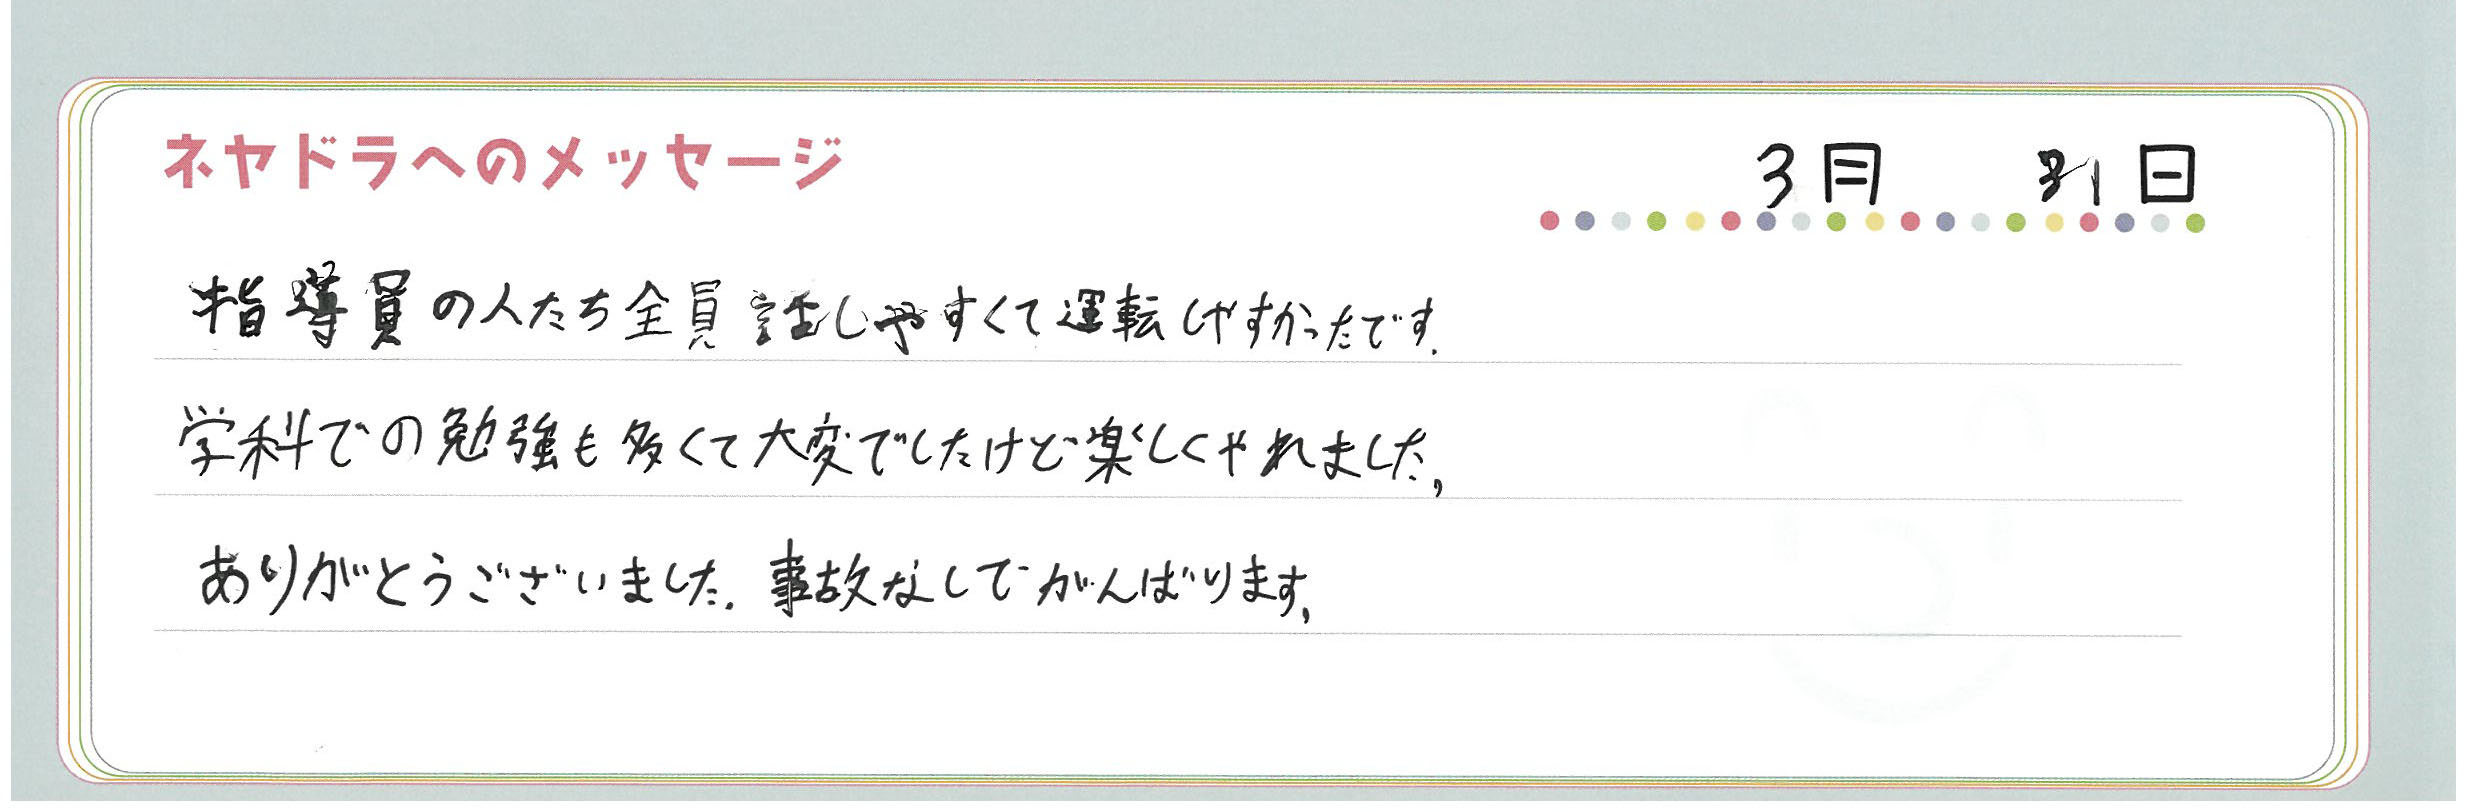 ネヤドラへのメッセージ
3月 31日
指導員の人たち全員話しやすくて運転しやすかったです.
学科での勉強も多くて大変でしたけど楽しくやれました,
ありがとうございました.事故なしでがんばります,